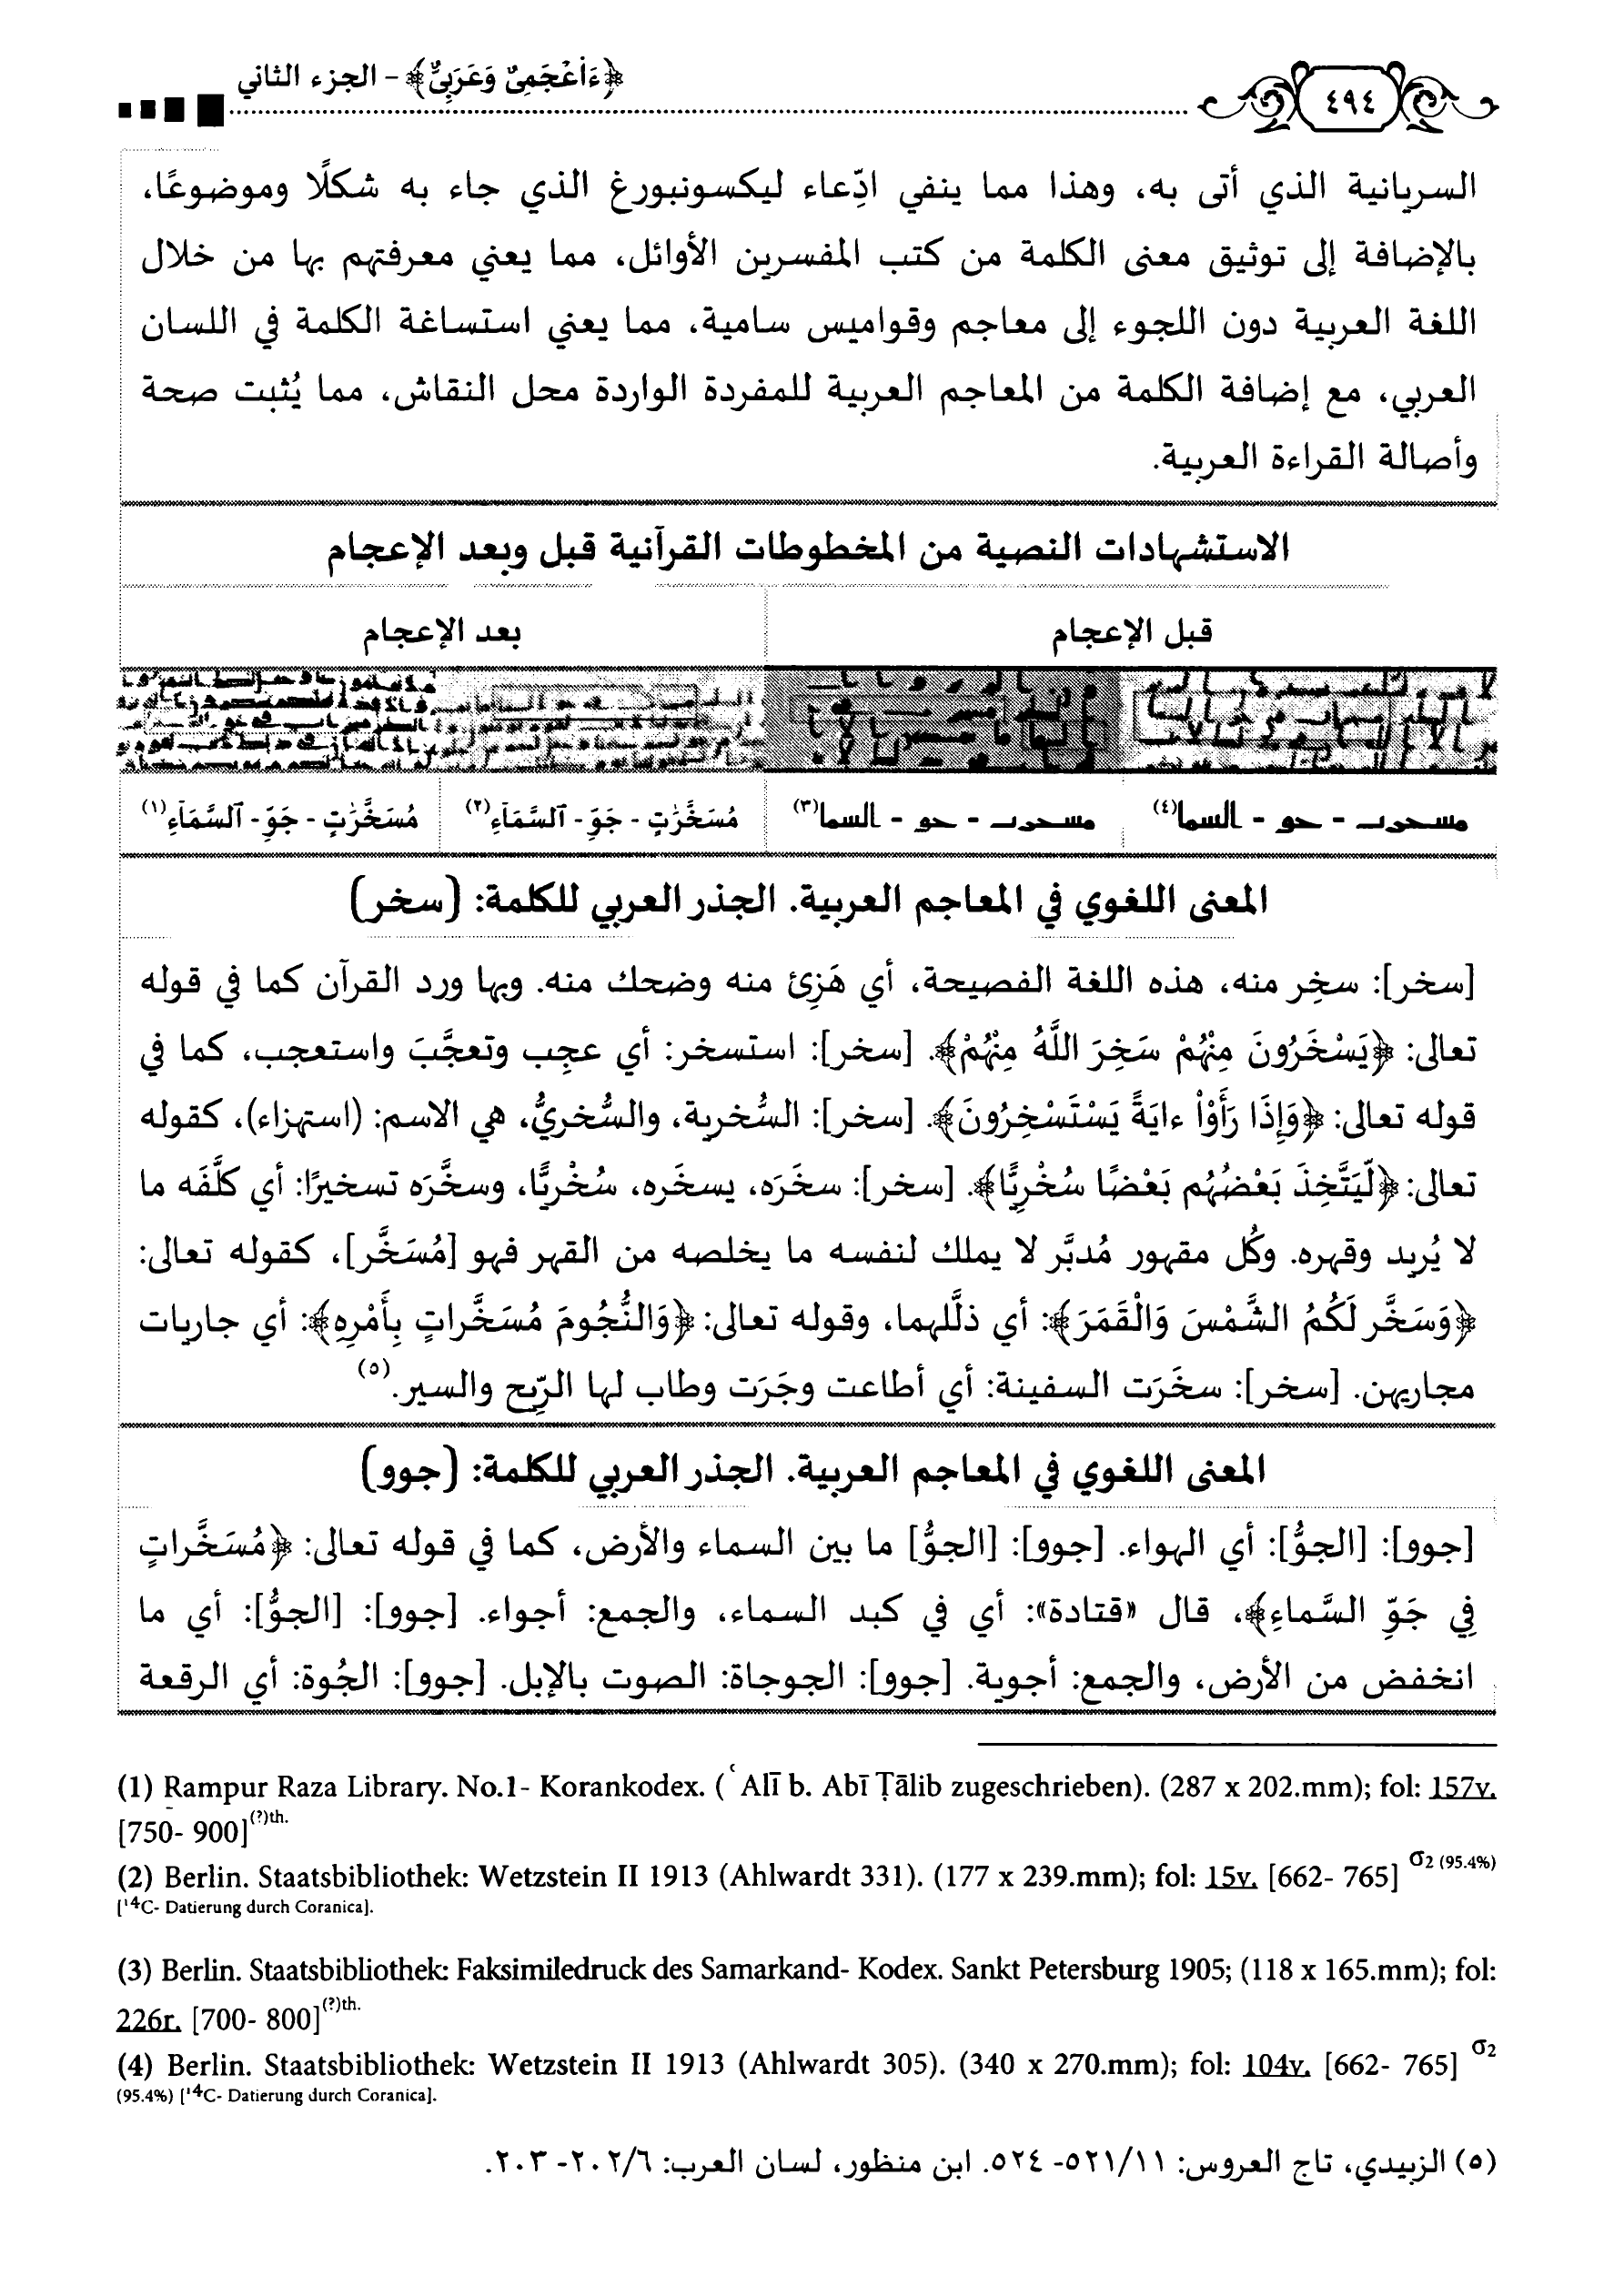 ٤٩٤
﴿ءَأَعْجَمِىٌّ وَعَرَبِىٌّ﴾ – الجزء الثاني
السريانية الذي أتى به، وهذا مما ينفي ادِّعاء ليكسونبورغ الذي جاء به شكلًا وموضوعًا،
بالإضافة إلى توثيق معنى الكلمة من كتب المفسرين الأوائل، مما يعني معرفتهم بها من خلال
اللغة العربية دون اللجوء إلى معاجم وقواميس سامية، مما يعني استساغة الكلمة في اللسان
العربي، مع إضافة الكلمة من المعاجم العربية للمفردة الواردة محل النقاش، مما يُثبت صحة
وأصالة القراءة العربية.
الاستشهادات النصية من المخطوطات القرآنية قبل وبعد الإعجام
قبل الإعجام
بعد الإعجام
مُسَخَّرَٰتٍ - جَوِّ - ٱلسَّمَآءِ(٢) مُسَخَّرَٰتٍ - جَوِّ - ٱلسَّمَآءِ(١)
المعنى اللغوي في المعاجم العربية. الجذر العربي للكلمة: (سخر)
[سخر]: سخِر منه، هذه اللغة الفصيحة، أي هَزِئ منه وضحك منه. وبها ورد القرآن كما في قوله
تعالى: ﴿يَسْخَرُونَ مِنْهُمْ سَخِرَ اللَّهُ مِنْهُمْ﴾. [سخر]: استسخر: أي عجِب وتعجَّبَ واستعجب، كما في
قوله تعالى: ﴿وَإِذَا رَأَوْاْ ءايَةً يَسْتَسْخِرُونَ﴾. [سخر]: السُّخرية، والسُّخريُّ، هي الاسم: (استهزاء)، كقوله
تعالى: ﴿لِّيَتَّخِذَ بَعْضُهُم بَعْضًا سُخْرِيًّا﴾. [سخر]: سخَرَه، يسخَره، سُخْرِيًّا، وسخَّرَه تسخيرًا: أي كلَّفَه ما
لا يُريد وقهره. وكُل مقهور مُدبَّر لا يملك لنفسه ما يخلصه من القهر فهو [مُسَخَّر]، كقوله تعالى:
﴿وَسَخَّر لَكُمُ الشَّمْسَ وَالْقَمَرَ﴾: أي ذلَّلهما، وقوله تعالى: ﴿وَالنُّجُومَ مُسَخَّراتٍ بِأَمْرِهِ﴾: أي جاريات
مجاريهن. [سخر]: سخَرَت السفينة: أي أطاعت وجَرَت وطاب لها الرِّيح والسير.(٥)
المعنى اللغوي في المعاجم العربية. الجذر العربي للكلمة: (جوو)
[جوو]: [الجوُّ]: أي الهواء. [جوو]: [الجوُّ] ما بين السماء والأرض، كما في قوله تعالى: ﴿مُسَخَّراتٍ
فِي جَوِّ السَّماءِ﴾، قال «قتادة»: أي في كبد السماء، والجمع: أجواء. [جوو]: [الجوُّ]: أي ما
انخفض من الأرض، والجمع: أجوية. [جوو]: الجوجاة: الصوت بالإبل. [جوو]: الجُوة: أي الرقعة
(1) Rampur Raza Library. No.1- Korankodex. (ʿAlī b. Abī Ṭālib zugeschrieben). (287 x 202.mm); fol: 157v.
[750- 900](?)th.
(2) Berlin. Staatsbibliothek: Wetzstein II 1913 (Ahlwardt 331). (177 x 239.mm); fol: 15v. [662- 765] σ2 (95.4%)
[¹⁴C- Datierung durch Coranica].
(3) Berlin. Staatsbibliothek: Faksimiledruck des Samarkand- Kodex. Sankt Petersburg 1905; (118 x 165.mm); fol:
226r. [700- 800](?)th.
(4) Berlin. Staatsbibliothek: Wetzstein II 1913 (Ahlwardt 305). (340 x 270.mm); fol: 104v. [662- 765] σ2
(95.4%) [¹⁴C- Datierung durch Coranica].
(٥) الزبيدي، تاج العروس: ٥٢١/١١- ٥٢٤. ابن منظور، لسان العرب: ٢٠٢/٦- ٢٠٣.